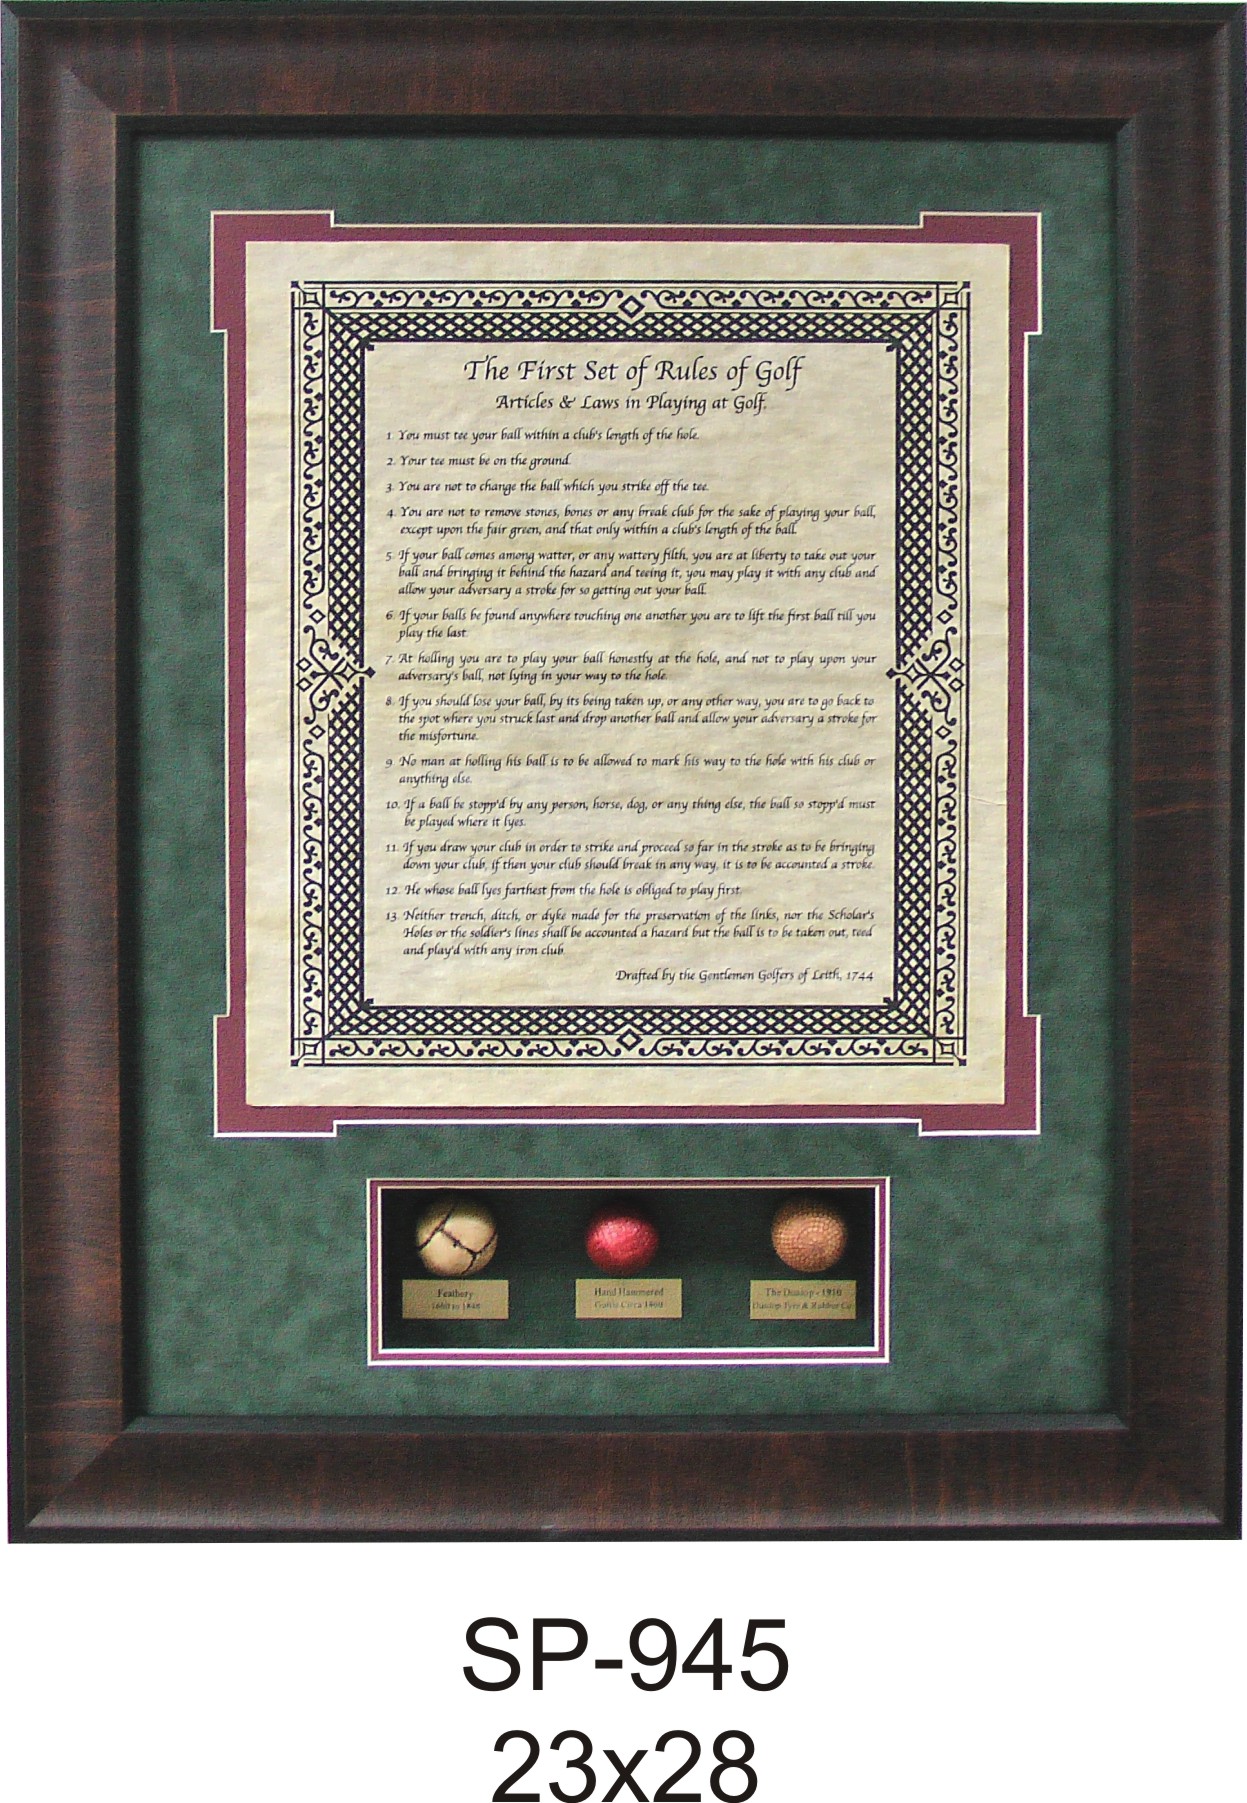 The First Set of Rules of Golf
Articles & Laws in Playing at Golf.
1. You must tee your ball within a club's length of the hole.
2. Your tee must be on the ground.
3. You are not to change the ball which you strike off the tee.
4. You are not to remove stones, bones or any break club for the sake of playing your ball,
except upon the fair green, and that only within a club's length of the ball.
5. If your ball comes among watter, or any wattery filth, you are at liberty to take out your
ball and bringing it behind the hazard and teeing it, you may play it with any club and
allow your adversary a stroke for so getting out your ball.
6. If your balls be found anywhere touching one another you are to lift the first ball till you
play the last.
7. At holling you are to play your ball honestly at the hole, and not to play upon your
adversary's ball, not lying in your way to the hole.
8. If you should lose your ball, by its being taken up, or any other way, you are to go back to
the spot where you struck last and drop another ball and allow your adversary a stroke for
the misfortune.
9 No man at holling his ball is to be allowed to mark his way to the hole with his club or
anything else.
10. If a ball be stopp'd by any person, horse, dog, or any thing else, the ball so stopp'd must
be played where it lyes.
11. If you draw your club in order to strike and proceed so far in the stroke as to be bringing
down your club, if then your club should break in any way, it is to be accounted a stroke.
12. He whose ball lyes farthest from the hole is obliged to play first.
13. Neither trench, ditch, or dyke made for the preservation of the links, nor the Scholar's
Holes or the soldier's lines shall be accounted a hazard but the ball is to be taken out, teed
and play'd with any iron club.
Drafted by the Gentlemen Golfers of Leith, 1744
Feathery
Hand Hammered
The Dunlop - 1910
Dunlop Tyre & Rubber Co
SP-945
23x28